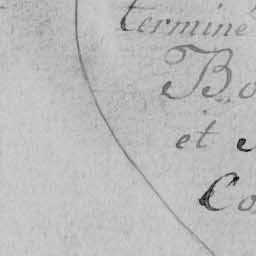 termine
Bo
et
Co